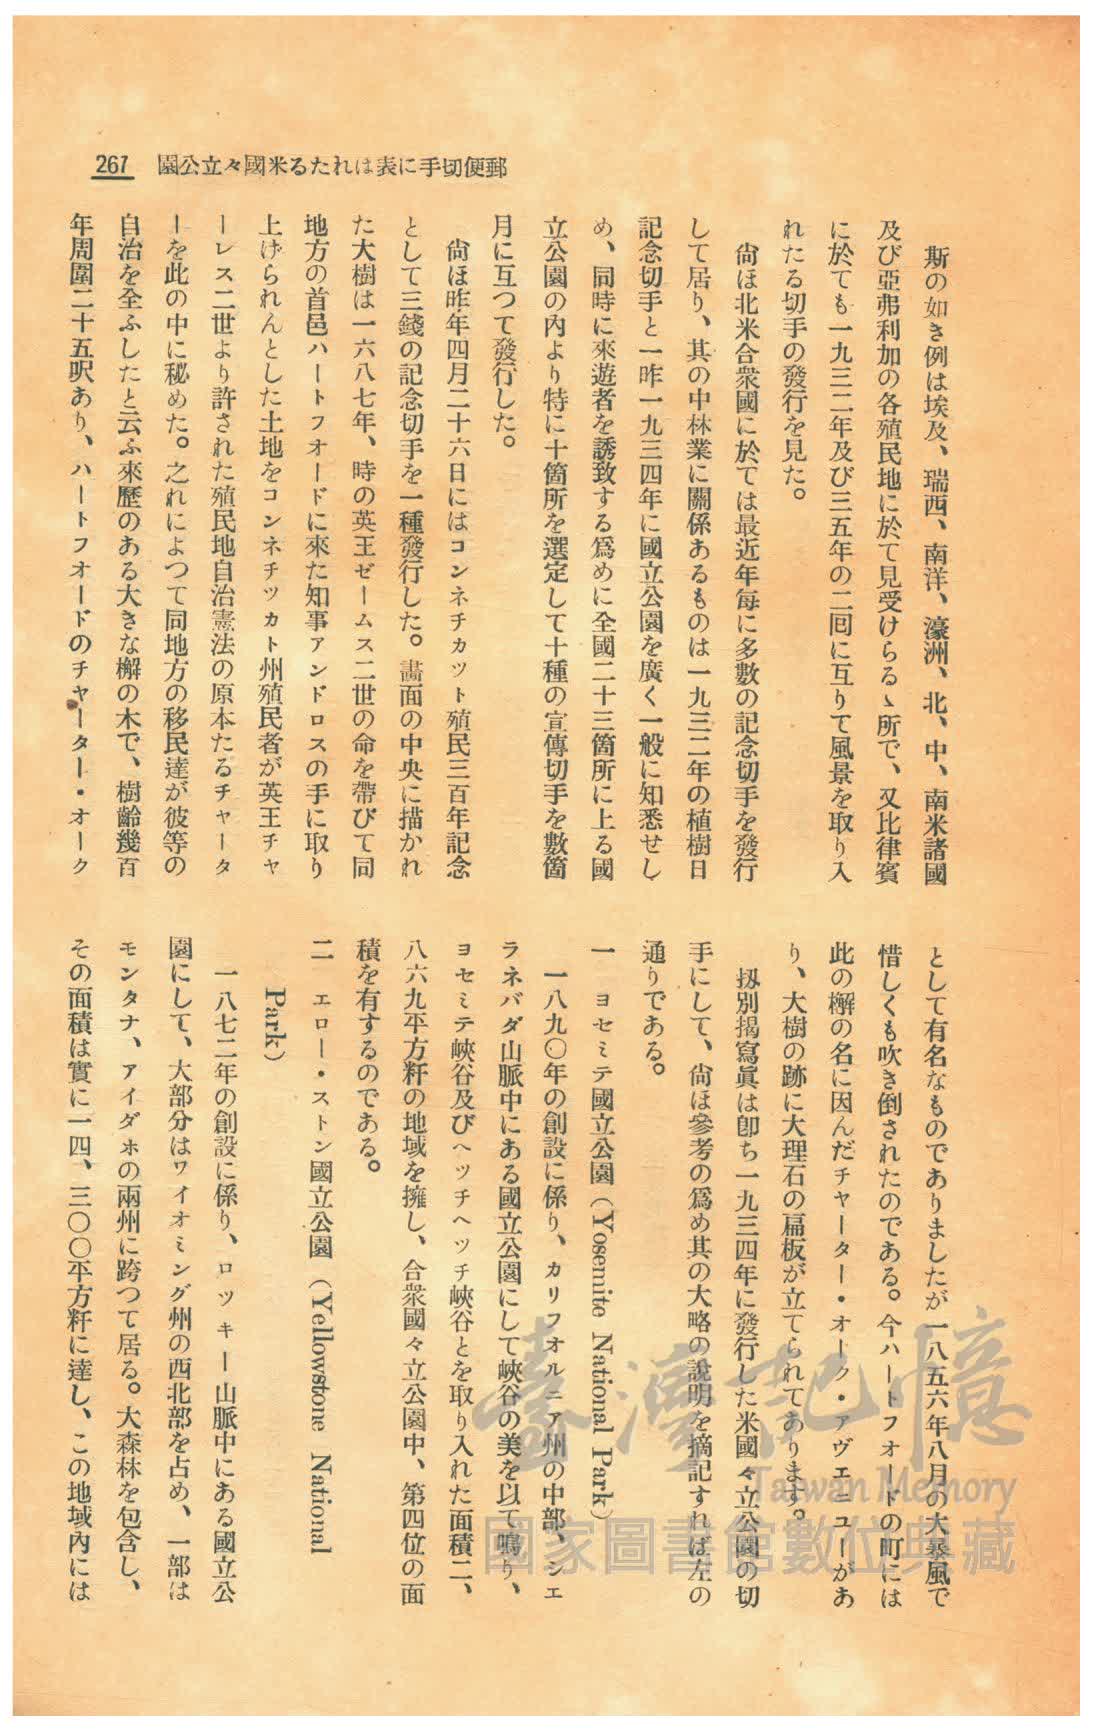 郵便切手に表はれたる米國々立公園 267
斯の如き例は埃及、瑞西、南洋、濠洲、北、中、南米諸國
及び亞弗利加の各殖民地に於て見受けらるゝ所で、又比律賓
に於ても一九三二年及び三五年の二囘に互りて風景を取り入
れたる切手の發行を見た。
尙ほ北米合衆國に於ては最近年每に多數の記念切手を發行
して居り、其の中林業に關係あるものは一九三二年の植樹日
記念切手と一昨一九三四年に國立公園を廣く一般に知悉せし
め、同時に來遊者を誘致する爲めに全國二十三箇所に上る國
立公園の內より特に十箇所を選定して十種の宣傳切手を數箇
月に互つて發行した。
尙ほ昨年四月二十六日にはコンネチカツト殖民三百年記念
として三錢の記念切手を一種發行した。畵面の中央に描かれ
た大樹は一六八七年、時の英王ゼームス二世の命を帶びて同
地方の首邑ハートフオードに來た知事アンドロスの手に取り
上げられんとした土地をコンネチツカト州殖民者が英王チヤ
ーレス二世より許された殖民地自治憲法の原本たるチャータ
ーを此の中に秘めた。之れによつて同地方の移民達が彼等の
自治を全ふしたと云ふ來歷のある大きな檞の木で、樹齡幾百
年周圍二十五呎あり、ハートフオードのチャーター・オーク
として有名なものでありましたが一八五六年八月の大暴風で
惜しくも吹き倒されたのである。今ハートフオードの町には
此の檞の名に因んだチャーター・オーク・アヴエニユーがあ
り、大樹の跡に大理石の扁板が立てられてあります。
扨別揭寫眞は卽ち一九三四年に發行した米國々立公園の切
手にして、尙ほ參考の爲め其の大略の說明を摘記すれば左の
通りである。
一 ヨセミテ國立公園(Yosemite National Park)
一八九〇年の創設に係り、カリフオルニア州の中部、シエ
ラネバダ山脈中にある國立公園にして峽谷の美を以て鳴り、
ヨセミテ峽谷及びヘツチヘツチ峽谷とを取り入れた面積二、
八六九平方粁の地域を擁し、合衆國々立公園中、第四位の面
積を有するのである。
二 エロー・ストン國立公園(Yellowstone National
Park)
一八七二年の創設に係り、ロツキー山脈中にある國立公
園にして、大部分はワイオミング州の西北部を占め、一部は
モンタナ、アイダホの兩州に跨つて居る。大森林を包含し、
その面積は實に一四、三〇〇平方粁に達し、この地域內には
臺灣記憶
Taiwan Memory
國家圖書館數位典藏